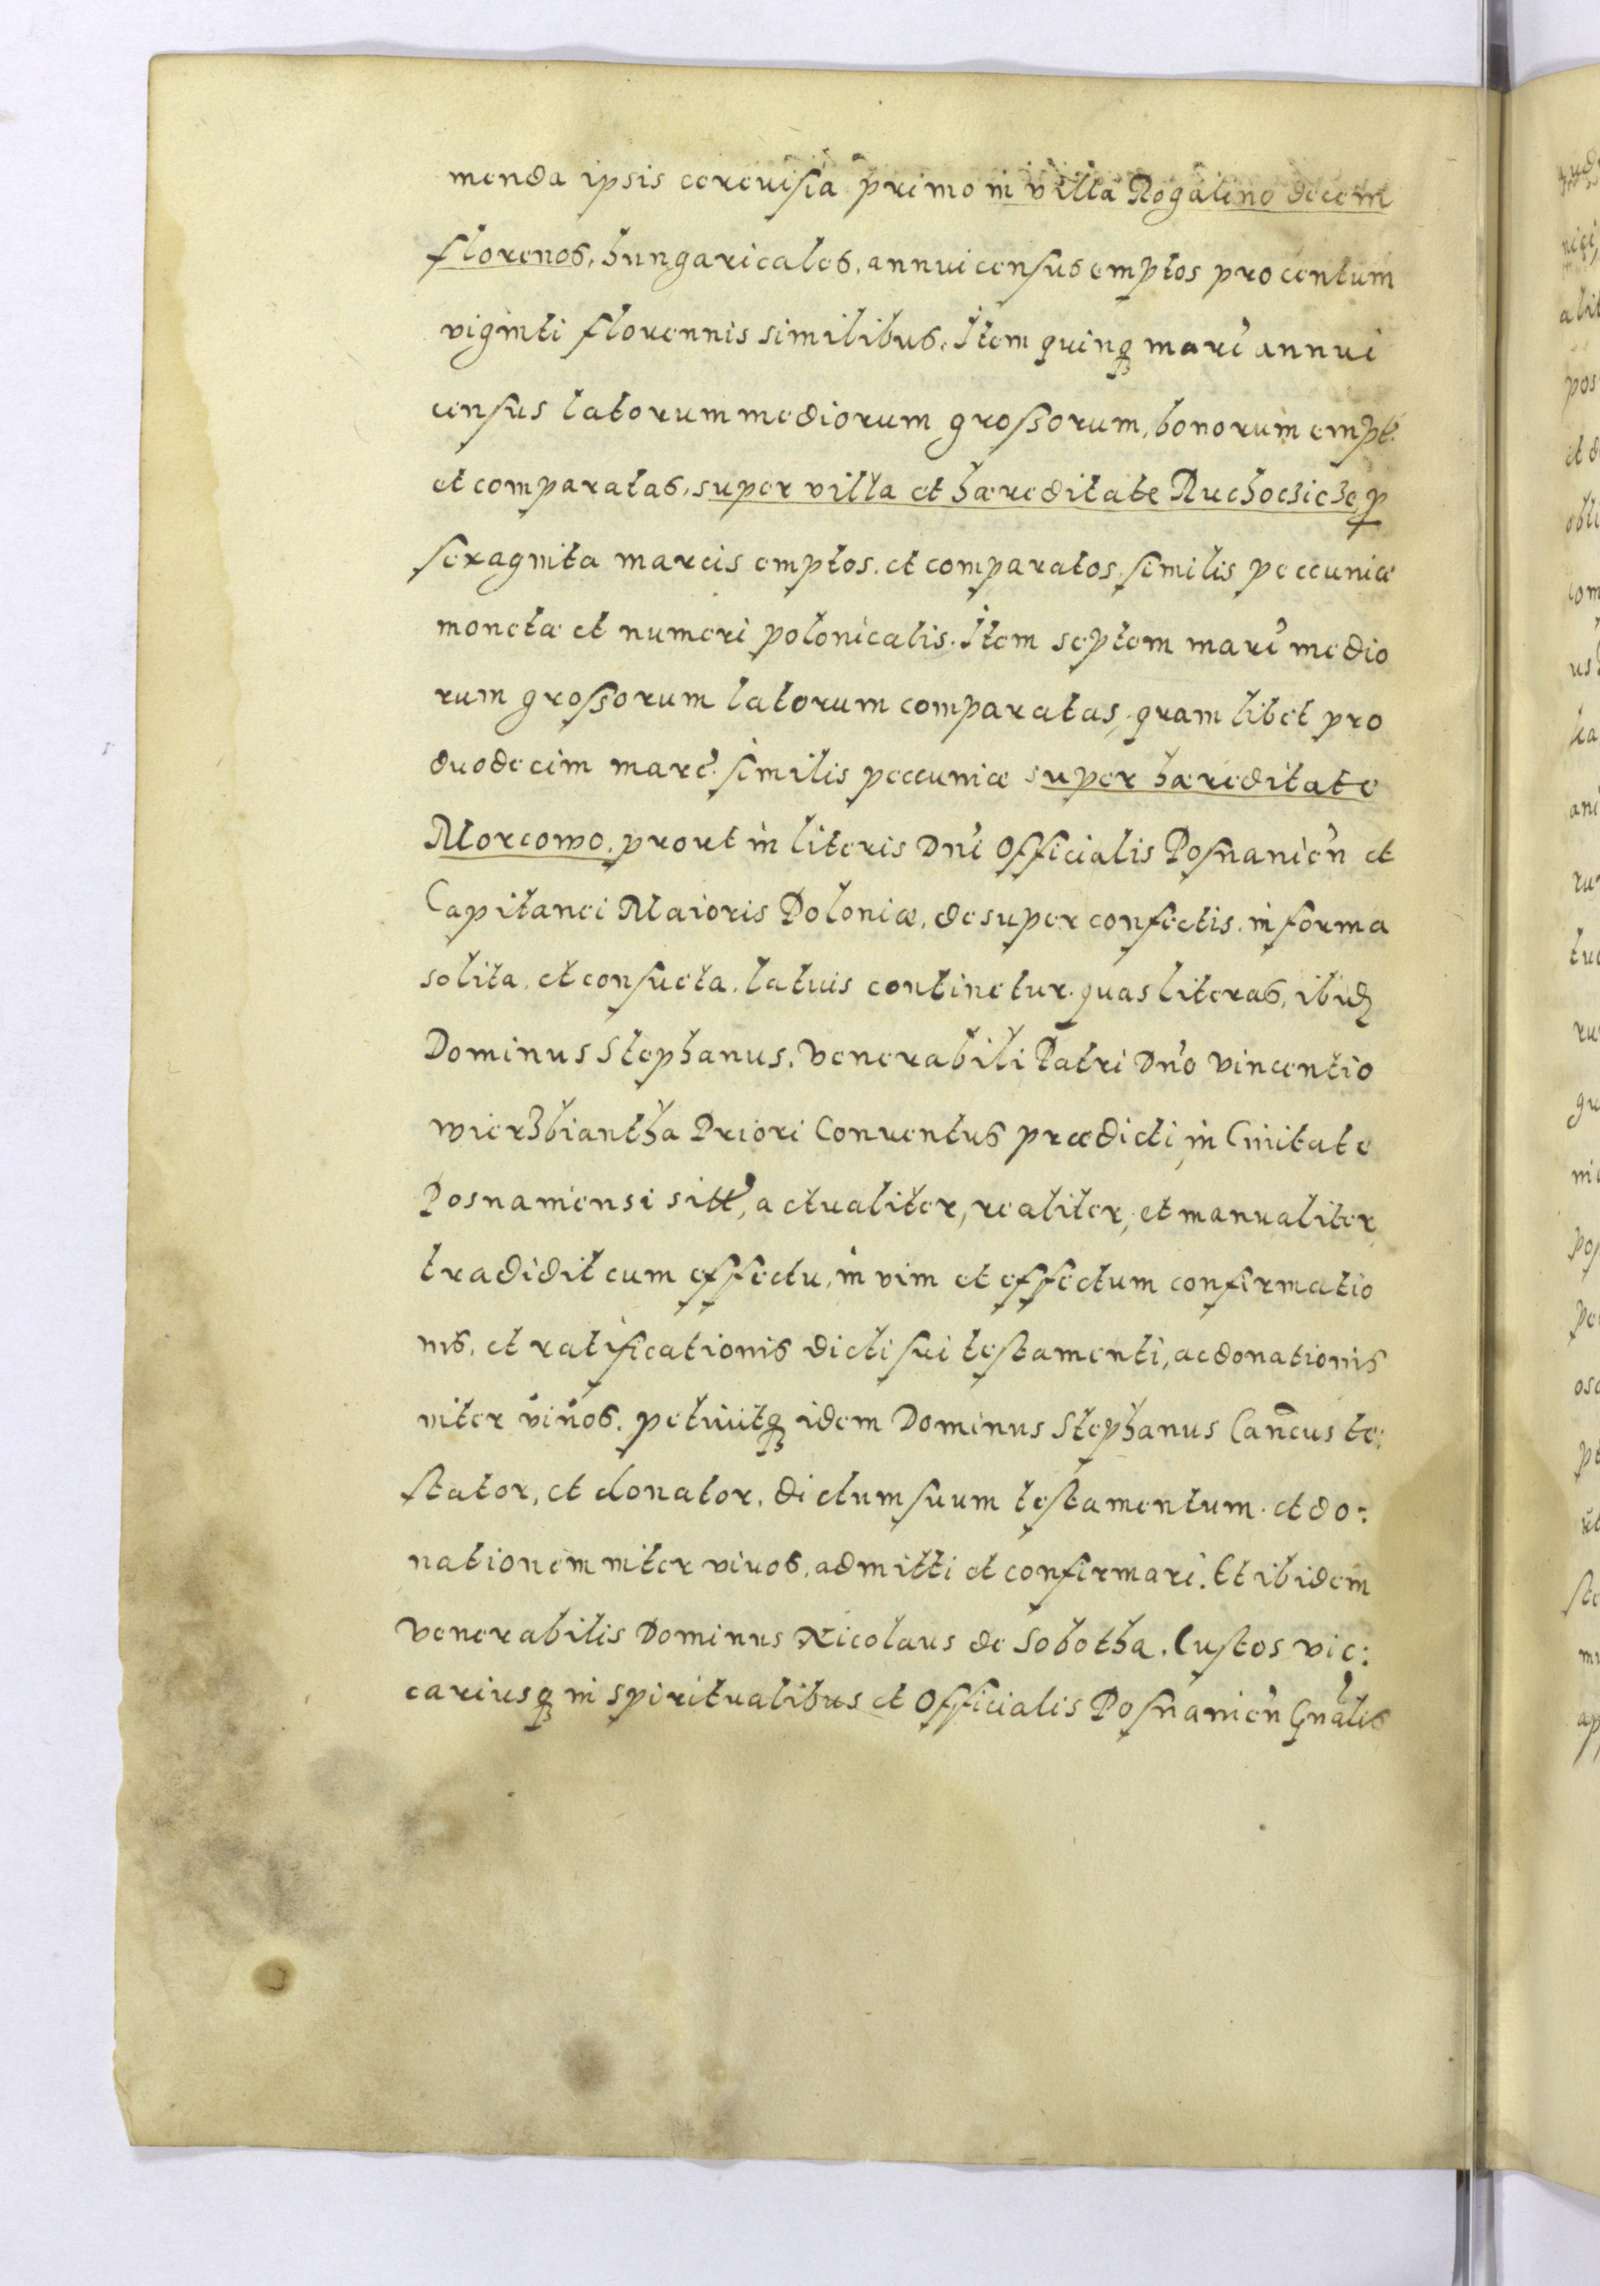 menda ipsis cereuisia primo in villa Rogalino decem
florenos, hungaricales, annui census emptos pro centum
viginti florennis similibus. Item quinq marc annui
census latorum mediorum grossorum, bonorum empt
et comparatas, super villa et hæreditate Ruchoczicze, p
sexaginta marcis emptos, et comparatos, similis peccuniæ
monetæ et numeri polonicalis. Item septem marc medio
rum grossorum latorum comparatas, quam libet pro
duodecim marc similis peccuniæ super hæreditate
Morcowo, prout in literis Dni Officialis Posnanien et
Capitanei Maioris Poloniæ, desuper confectis, in forma
solita, et consueta, latius continetur, quas literas, ibid
Dominus Stephanus, Venerabili Patri Dno Vincentio
Wierzbiantha Priori Conuentus prædicti, in Ciuitate
Posnaniensi sitt, actualiter, realiter, et manualiter,
tradidit cum effectu, in vim et effectum confirmatio
nis, et ratificationis dicti sui testamenti, ac donationis
inter viuos, petiuitq idem Dominus Stephanus Cancus te:
stator, et donator, dictum suum testamentum, et do:
nationem inter viuos, admitti et confirmari. Et ibidem
Venerabilis Dominus Nicolaus de Sobotha, Custos vic:
cariusq in spiritualibus et Officialis Posnanien Gnalis